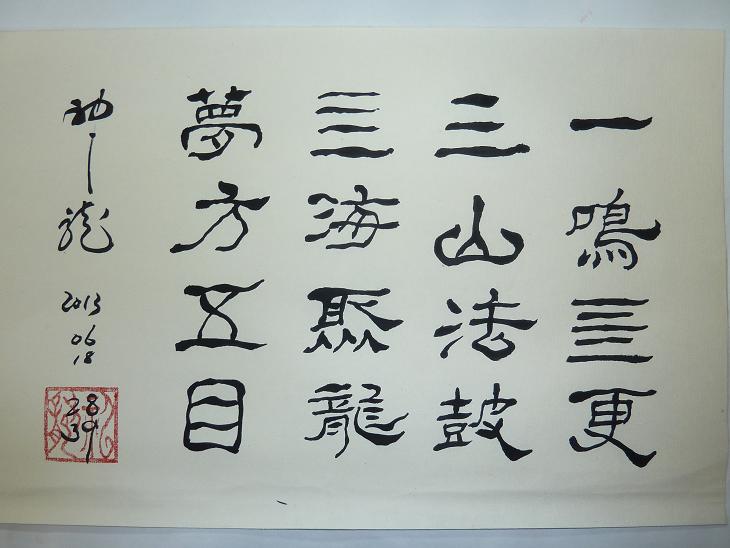 一鳴亖更
三山法鼓
亖海聚龍
夢方五目
龍
2013
06
18